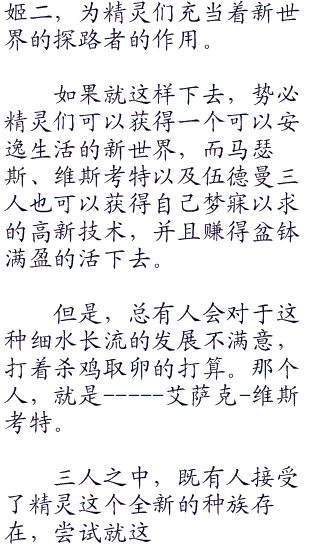 姬二，为精灵们充当着新世
界的探路者的作用。
如果就这样下去，势必
精灵们可以获得一个可以安
逸生活的新世界，而马瑟
斯、维斯考特以及伍德曼三
人也可以获得自己梦寐以求
的高新技术，并且赚得盆钵
满盈的活下去。
但是，总有人会对于这
种细水长流的发展不满意，
打着杀鸡取卵的打算。那个
人，就是-----艾萨克-维斯
考特。
三人之中，既有人接受
了精灵这个全新的种族存
在，尝试就这